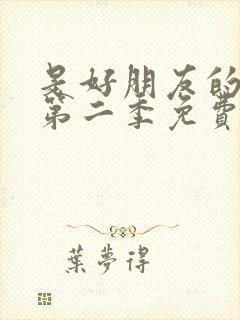 是好朋友的
第二季免費
葉夢得